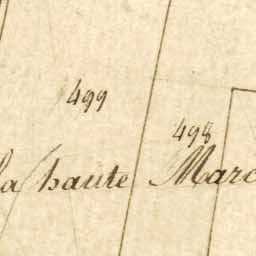 499
498
la haute Marc